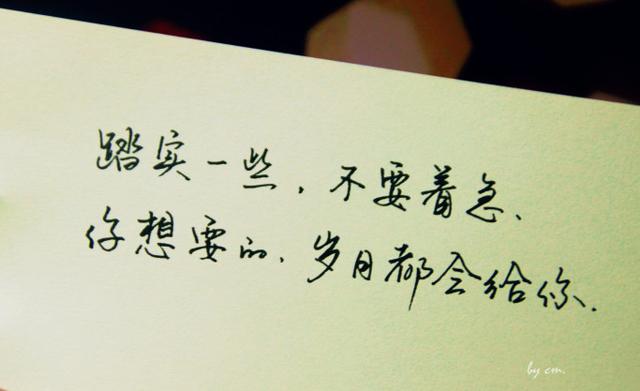 踏实一些，不要着急、
你想要的、岁月都会给你.
by cm.